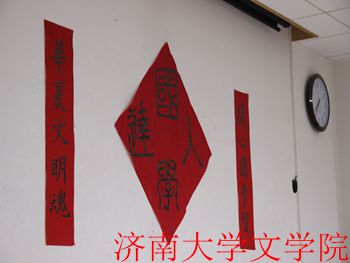 華夏文明魂
國學達人
济南大学文学院